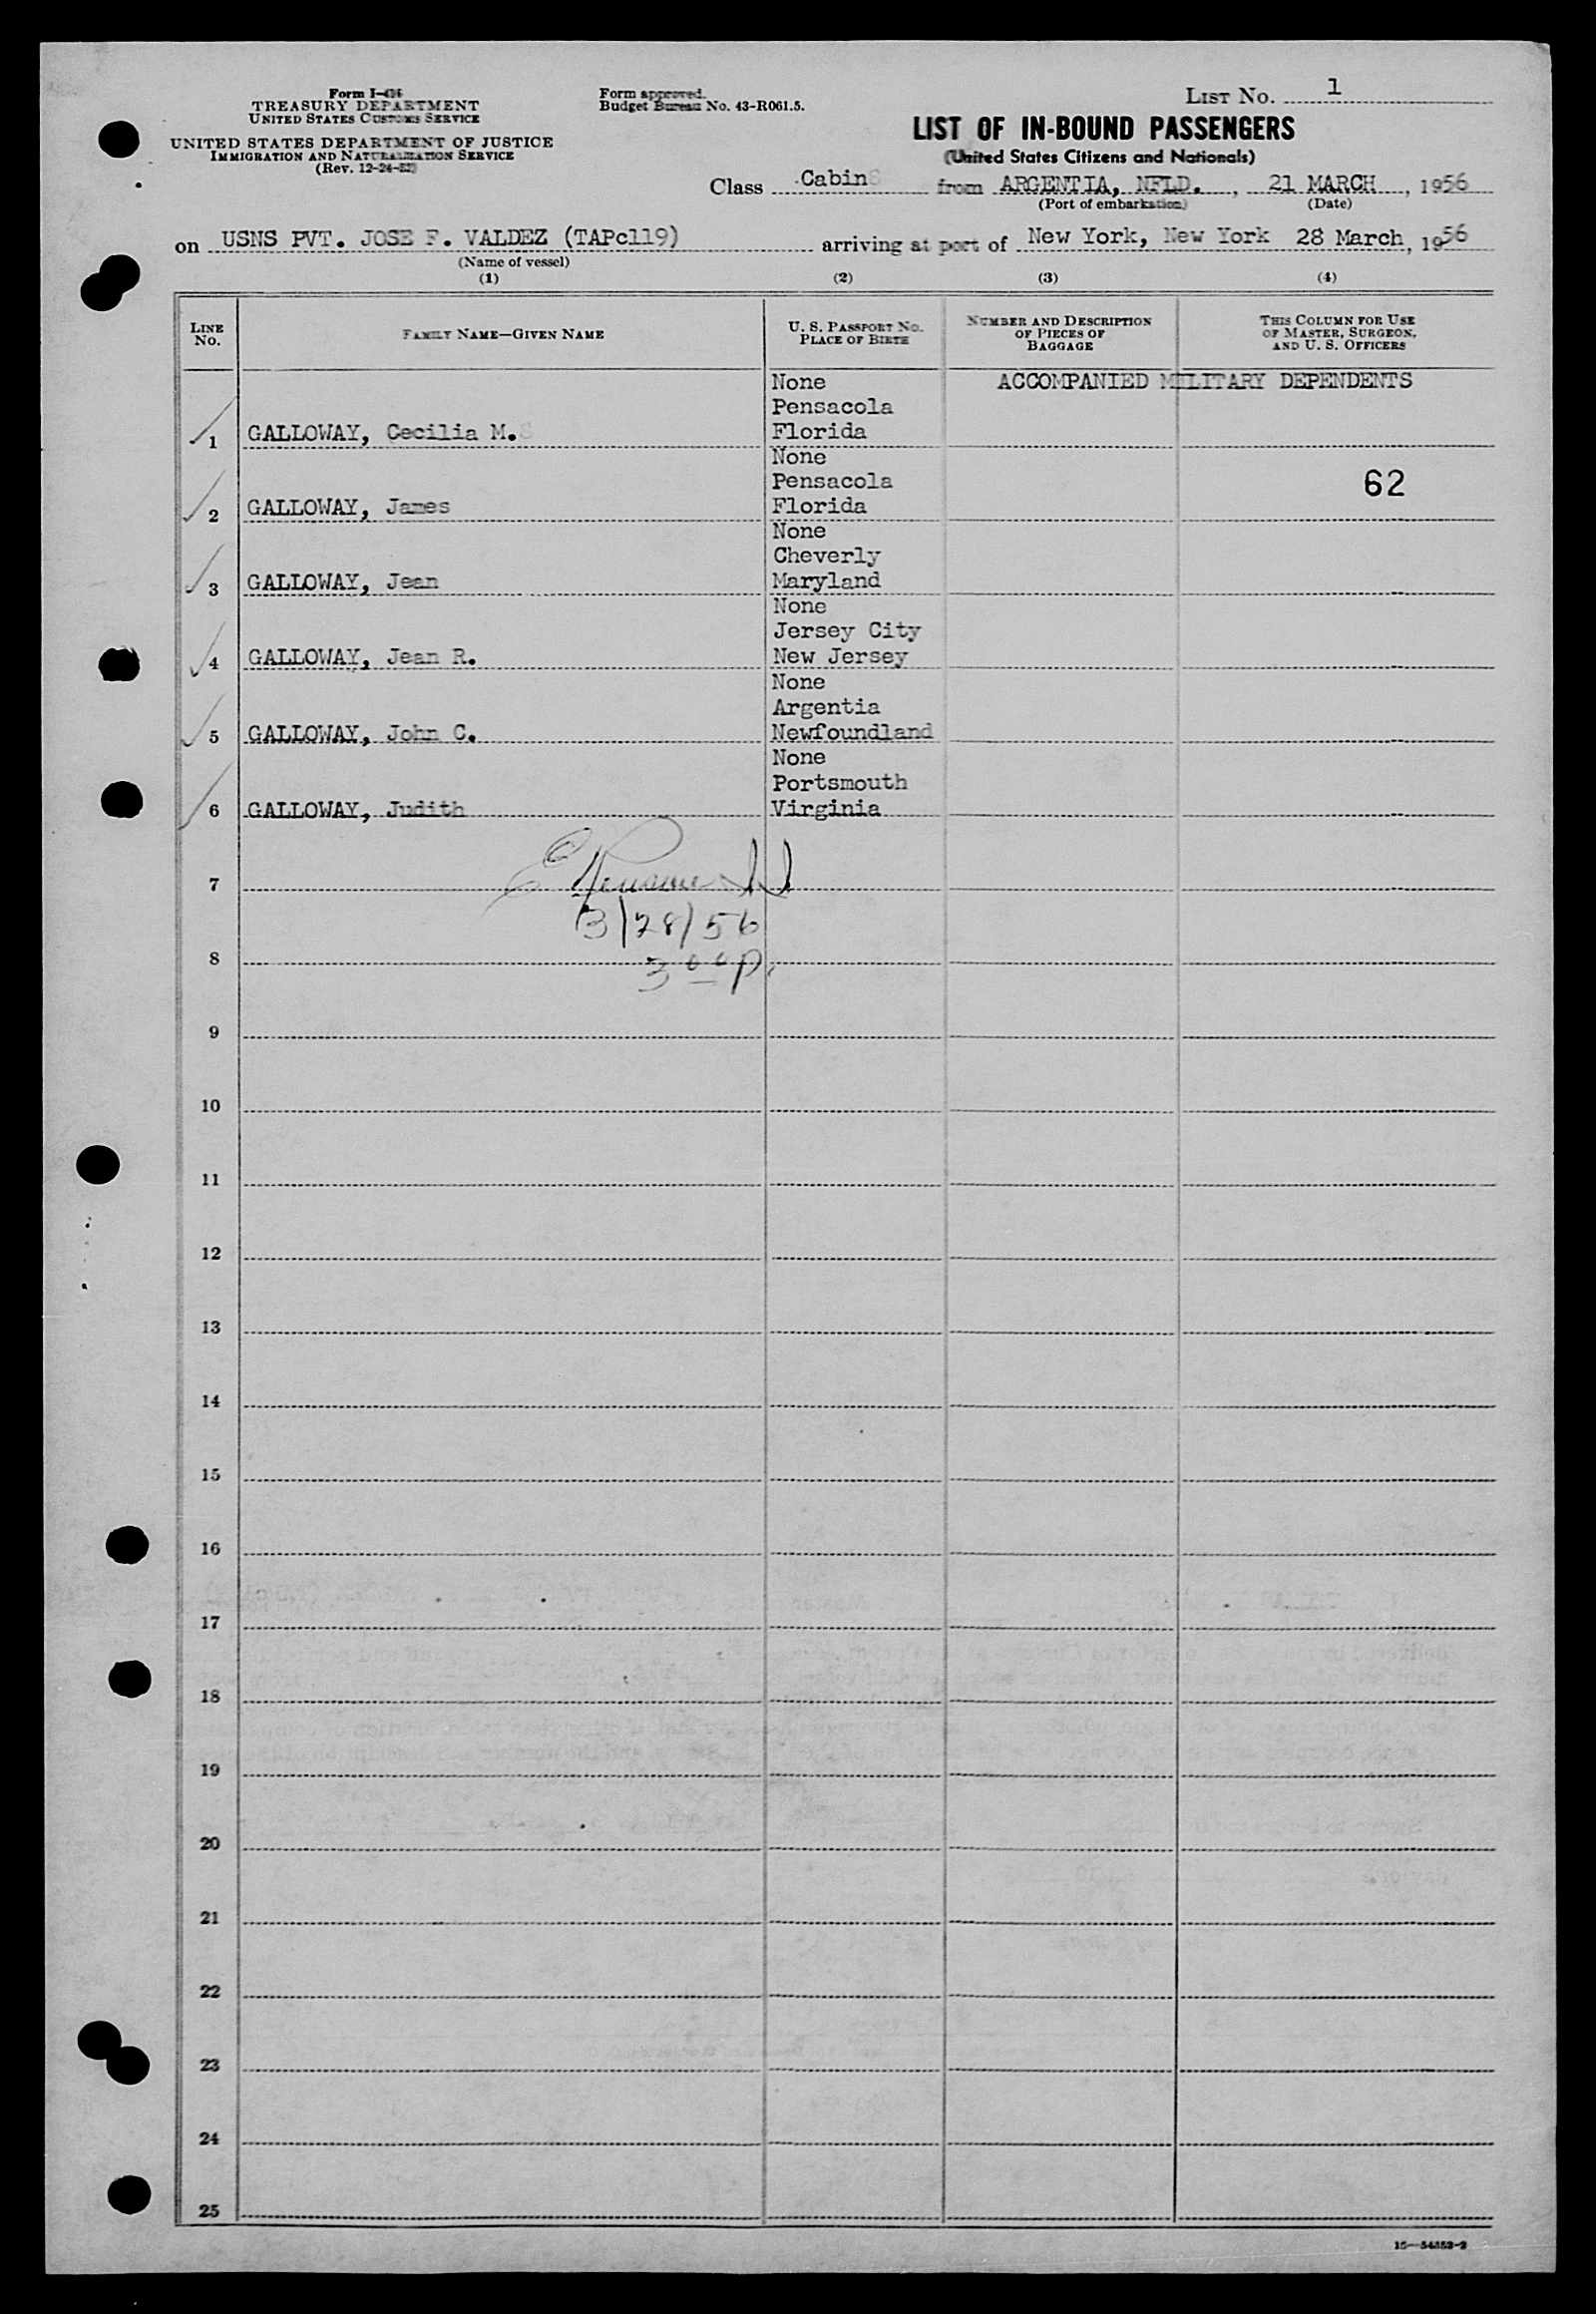 TREASURY DEPARTMENT
UNITED STATES CUSTOMS SERVICE
UNITED STATES DEPARTMENT OF JUSTICE
IMMIGRATION AND NATURALIZATION SERVICE
Form approved.
Budget Bureau No. 43-R061.5.
LIST NO. 1
LIST OF IN-BOUND PASSENGERS
(United States Citizens and Nationals)
Class Cabin from ARGENTIA, NFLD., 21 MARCH, 1956
(Port of embarkation) (Date)
on USNS PVT. JOSE F. VALDEZ (TAPc119) arriving at port of New York, New York 28 March, 1956
(Name of vessel)
(1) (2) (3) (4)
LINE NO.
FAMILY NAME—GIVEN NAME
U. S. PASSPORT NO.
PLACE OF BIRTH
NUMBER AND DESCRIPTION
OF PIECES OF
BAGGAGE
THIS COLUMN FOR USE
OF MASTER, SURGEON,
AND U. S. OFFICERS
None ACCOMPANIED MILITARY DEPENDENTS
Pensacola
1 GALLOWAY, Cecilia M. Florida
None
Pensacola 62
2 GALLOWAY, James Florida
None
Cheverly
3 GALLOWAY, Jean Maryland
None
Jersey City
4 GALLOWAY, Jean R. New Jersey
None
Argentia
5 GALLOWAY, John C. Newfoundland
None
Portsmouth
6 GALLOWAY, Judith Virginia
7
3/28/56
8
3 00 p.
9
10
11
12
13
14
15
16
17
18
19
20
21
22
23
24
25